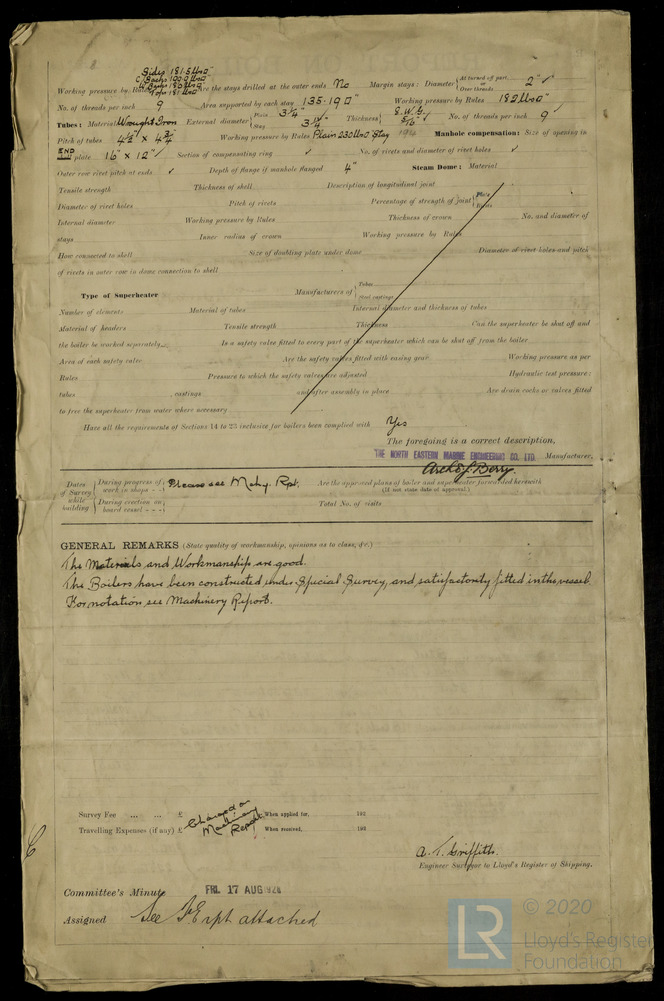 Sides 181.5 lbs□"
C/Backs 190.0 lbs□
W. Backs 180 lbs□
Working pressure by Rules Tops 181 lbs□" Are the stays drilled at the outer ends No Margin stays: Diameter {At turned off part, or Over threads 2" ✓
No. of threads per inch 9 Area supported by each stay 135.19 □" Working pressure by Rules 182 lbs□"
Tubes: Material Wrought Iron External diameter {Plain 3¼" Stay 3¼" Thickness { 8.W.G. 5/16" ✓ No. of threads per inch 9 ✓
Pitch of tubes 4½" x 4¾" Working pressure by Rules Plain 230 lbs□" Stay Manhole compensation: Size of opening in
END plate 16" x 12" ✓ Section of compensating ring ✓ No. of rivets and diameter of rivet holes ✓
Outer row rivet pitch at ends ✓ Depth of flange if manhole flanged 4" Steam Dome: Material
Tensile strength Thickness of shell Description of longitudinal joint
Diameter of rivet holes Pitch of rivets Percentage of strength of joint {Plate Rivets
Internal diameter Working pressure by Rules Thickness of crown No. and diameter of
stays Inner radius of crown Working pressure by Rules
How connected to shell Size of doubling plate under dome Diameter of rivet holes and pitch
of rivets in outer row in dome connection to shell
Type of Superheater Manufacturers of {Tubes Steel castings
Number of elements Material of tubes Internal diameter and thickness of tubes
Material of headers Tensile strength Thickness Can the superheater be shut off and
the boiler be worked separately Is a safety valve fitted to every part of the superheater which can be shut off from the boiler
Area of each safety valve Are the safety valves fitted with easing gear Working pressure as per
Rules Pressure to which the safety valves are adjusted Hydraulic test pressure:
tubes , castings and after assembly in place Are drain cocks or valves fitted
to free the superheater from water where necessary
Have all the requirements of Sections 14 to 23 inclusive for boilers been complied with Yes
The foregoing is a correct description,
THE NORTH EASTERN MARINE ENGINEERING CO. LTD. Manufacturer.
Dates of Survey while building {During progress of work in shops - - } Please see Mchy. Rpt. Are the approved plans of boiler and superheater forwarded herewith
(If not state date of approval.)
{During erection on board vessel - - - } Total No. of visits
GENERAL REMARKS (State quality of workmanship, opinions as to class, &c.)
The Materials and Workmanship are good.
The Boilers have been constructed under Special Survey, and satisfactorily fitted in the vessel.
For notation see Machinery Report.
Survey Fee ... ... £ Charged on When applied for, 192
Travelling Expenses (if any) £ Machinery Report. When received, 192
A. T. Griffith.
Engineer Surveyor to Lloyd's Register of Shipping.
Committee's Minute FRI. 17 AUG 1928
Assigned See F.E. rpt attached
LR © 2020
Lloyd's Register
Foundation